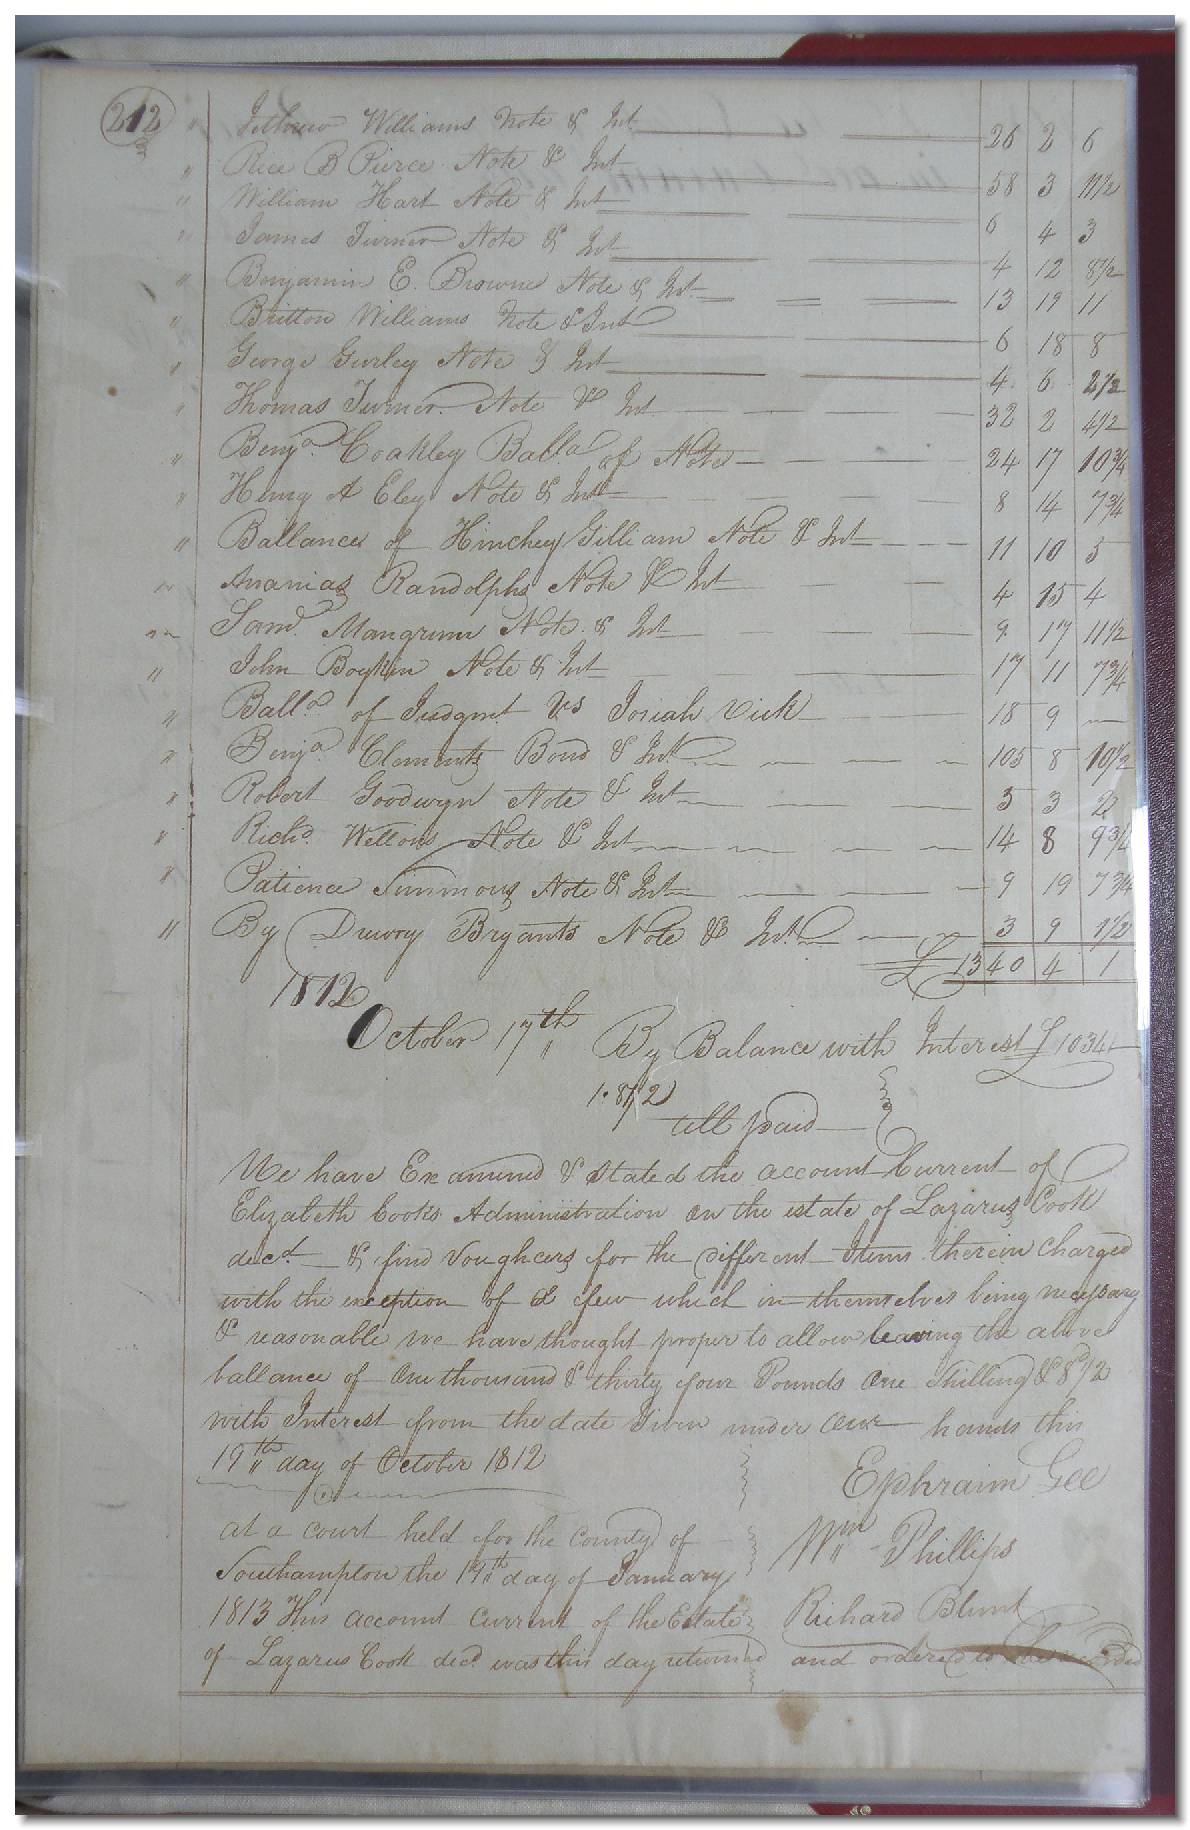 212
" Jethrew Williams Note & Int 26 2 6
" Rice B Pierce Note & Int 58 3 11 1/2
" William Hart Note & Int 6 4 3
" James Turner Note & Int 4 12 8 1/2
" Benjamin E. Browne Note & Int 13 19 11
" Britton Williams Note & Int 6 18 8
" George Gurley Note & Int 4 6 2 1/2
" Thomas Turner Note & Int 32 2 4 1/2
" Benja. Coakley Balla of Note 24 17 10 3/4
" Henry A Eley Note & Int 8 14 7 3/4
" Ballance of Hinchey Gilliam Note & Int 11 10 5
" Ananias Randolphs Note & Int 4 15 4
" Saml. Mangrum Note & Int 9 17 11 1/2
" John Boykin Note & Int 17 11 7 3/4
" Balla. of Judgmt Vs Josiah Vick 18 9 —
" Benja Clements Bond & Int 105 8 10 1/2
" Robert Goodwyn Note & Int 5 3 2
" Richd. Wettons Note & Int 14 8 9 3/4
" Patience Simmons Note & Int 9 19 7 3/4
" By Drewry Bryants Note & Int 3 9 1 1/2
£ 1340 4 1
1812
October 17th By Balance with Interest £ 1034
1.8 1/2
till paid
We have Examined & stated the account Current of
Elizabeth Cooks Administration on the estate of Lazarus Cook
decd. & find Voughcers for the different Items therein charged
with the exception of a few which in themselves being necessary
& reasonable we have thought proper to allow leaving the above
ballance of One thousand & thirty four Pounds One Shilling & 8d 1/2
with Interest from the date Given under our hands this
19th day of October 1812
Ephraim Gee
Wm Phillips
Richard Blunt
at a court held for the County of
Southampton the 19th day of January
1813 This account Current of the Estate
of Lazarus Cook decd. was this day returned and ordered to be recorded